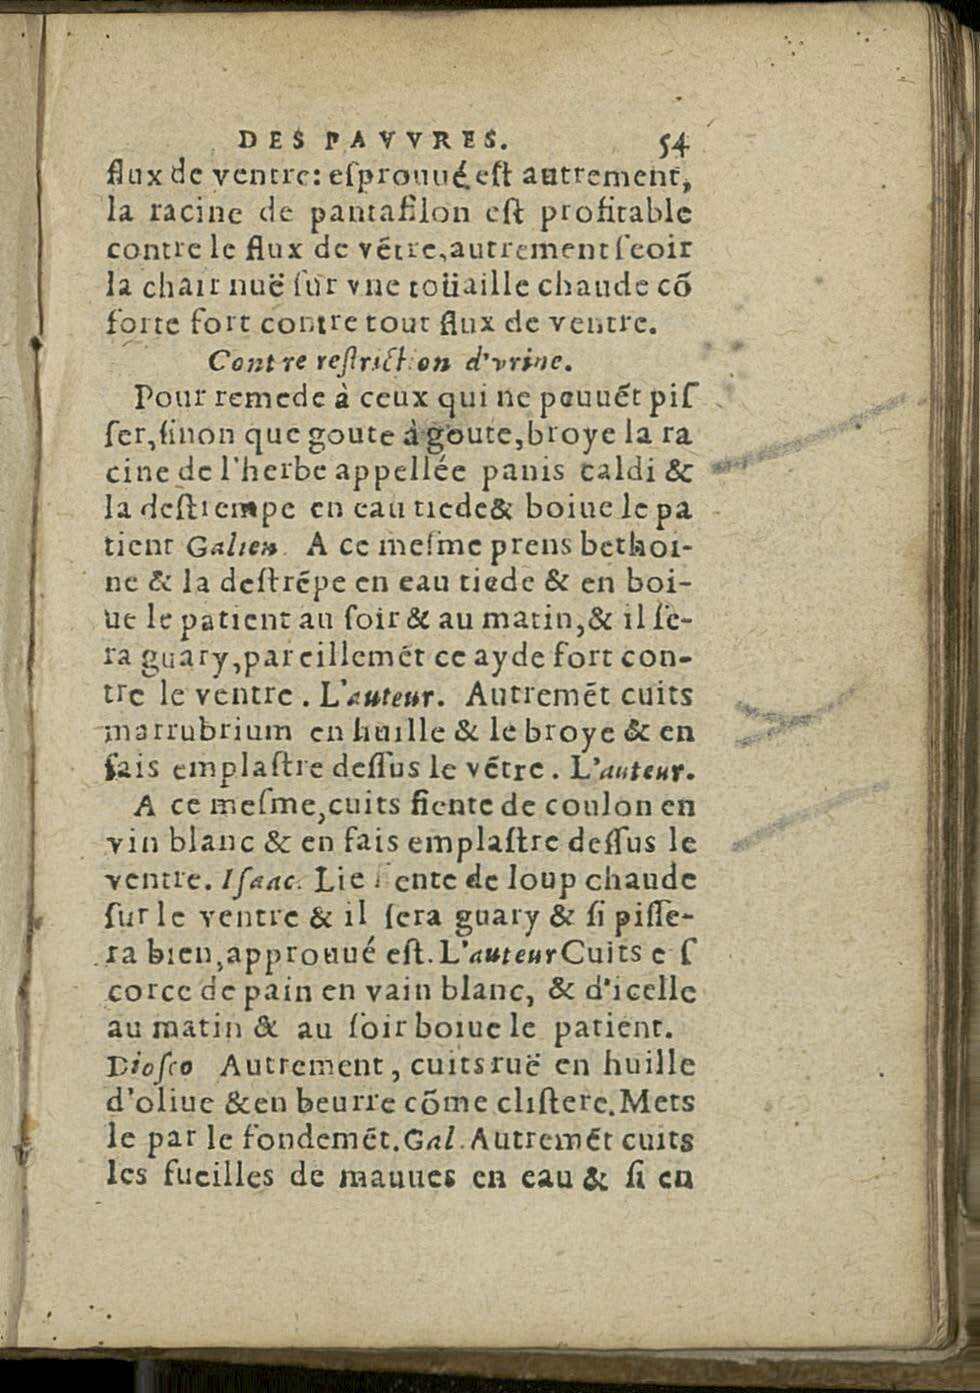 DES PAVVRES. 54
flux de ventre: eſprouué eſt autrement,
la racine de pantafilon eſt profitable
contre le flux de vẽtre, autrement ſeoir
la chair nuë ſur vne toüaille chaude cõ
forte fort contre tout flux de ventre.
Contre reſtriction d'vrine.
Pour remede à ceux qui ne pouuẽt piſ
ſer, ſinon que goute à goute, broye la ra
cine de l'herbe appellée panis caldi &
la deſtiempe en eau tiede & boiue le pa
tient Galien. A ce meſme prens bethoi-
ne & la deſtrẽpe en eau tiede & en boi-
ue le patient au ſoir & au matin, & il ſe-
ra guary, pareillemẽt ce ayde fort con-
tre le ventre. L'auteur. Autremẽt cuits
marrubrium en huille & le broye & en
fais emplaſtre deſſus le vẽtre. L'auteur.
A ce meſme, cuits fiente de coulon en
vin blanc & en fais emplaſtre deſſus le
ventre. Iſaac. Lie ente de loup chaude
ſur le ventre & il ſera guary & ſi piſſe-
ra bien, approuué eſt. L'auteur Cuits e ſ
corce de pain en vain blanc, & d'icelle
au matin & au ſoir boiue le patient.
Dioſco Autrement, cuits ruë en huille
d'oliue & en beurre cõme cliſtere. Mets
le par le fondemẽt. Gal. Autremẽt cuits
les fueilles de mauues en eau & ſi en